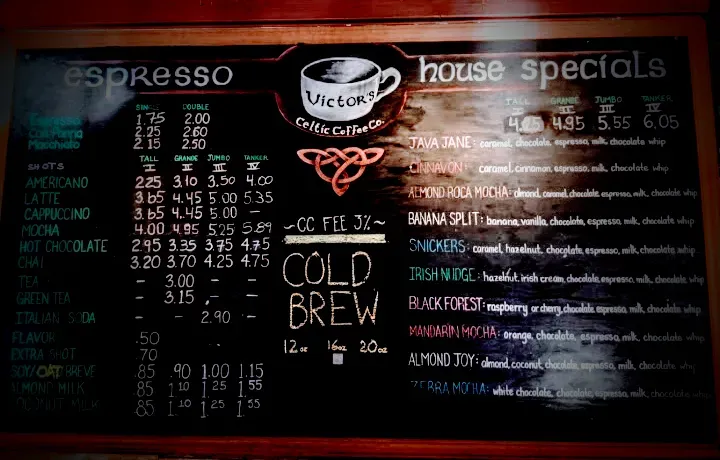 espresso
SINGLE DOUBLE
Espresso 1.75 2.00
Con Panna 2.25 2.60
Macchiato 2.15 2.50
SHOTS TALL GRANDE JUMBO TANKER
I II III IV
AMERICANO 2.25 3.10 3.50 4.00
LATTE 3.65 4.45 5.00 5.35
CAPPUCCINO 3.65 4.45 5.00 -
MOCHA 4.00 4.95 5.25 5.89
HOT CHOCOLATE 2.95 3.35 3.75 4.75
CHAI 3.20 3.70 4.25 4.75
TEA - 3.00 - -
GREEN TEA - 3.15 - -
ITALIAN SODA - - 2.90 -
FLAVOR .50
EXTRA SHOT .70
SOY/OAT BREVE .85 .90 1.00 1.15
ALMOND MILK .85 1.10 1.25 1.55
COCONUT MILK .85 1.10 1.25 1.55
Victor's
Celtic Coffee Co.
~CC FEE 3%~
COLD
BREW
12oz 16oz 20oz
house specials
TALL GRANDE JUMBO TANKER
I II III IV
4.25 4.95 5.55 6.05
JAVA JANE: caramel, chocolate, espresso, milk, chocolate whip
CINNAVON: caramel, cinnamon, espresso, milk, chocolate whip
ALMOND ROCA MOCHA: almond, caramel, chocolate, espresso, milk, chocolate whip
BANANA SPLIT: banana, vanilla, chocolate, espresso, milk, chocolate whip
SNICKERS: caramel, hazelnut, chocolate, espresso, milk, chocolate whip
IRISH NUDGE: hazelnut, irish cream, chocolate, espresso, milk, chocolate whip
BLACK FOREST: raspberry or cherry, chocolate, espresso, milk, chocolate whip
MANDARIN MOCHA: orange, chocolate, espresso, milk, chocolate whip
ALMOND JOY: almond, coconut, chocolate, espresso, milk, chocolate whip
ZEBRA MOCHA: white chocolate, chocolate, espresso, milk, chocolate whip